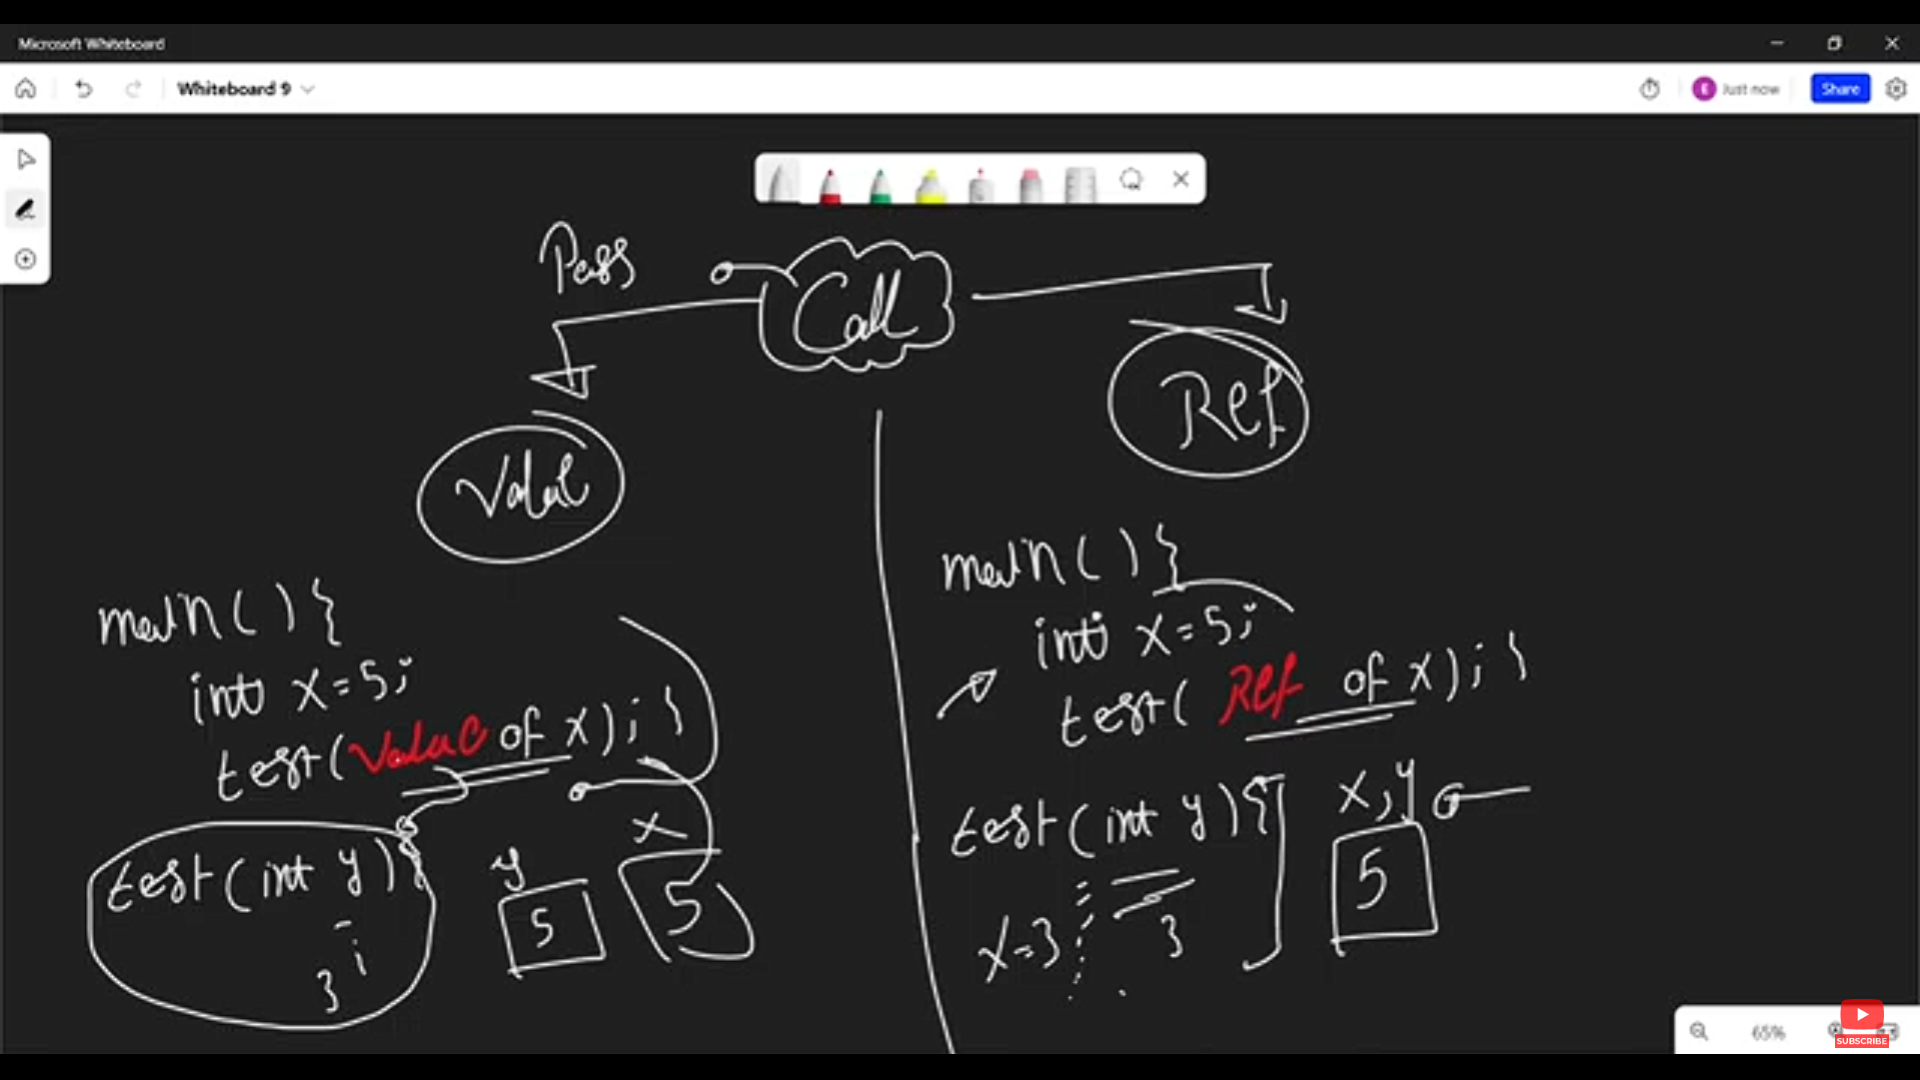 Microsoft Whiteboard
Whiteboard 9
E Just now
Share
Pass
Call
Value
Ref
main() {
int x=5;
test(Value of x); }
test(int y) {
}
y
5
x
5
main() {
int x=5;
test( Ref of x); }
test(int y) {
x=3
}
x,y
5
65%
SUBSCRIBE